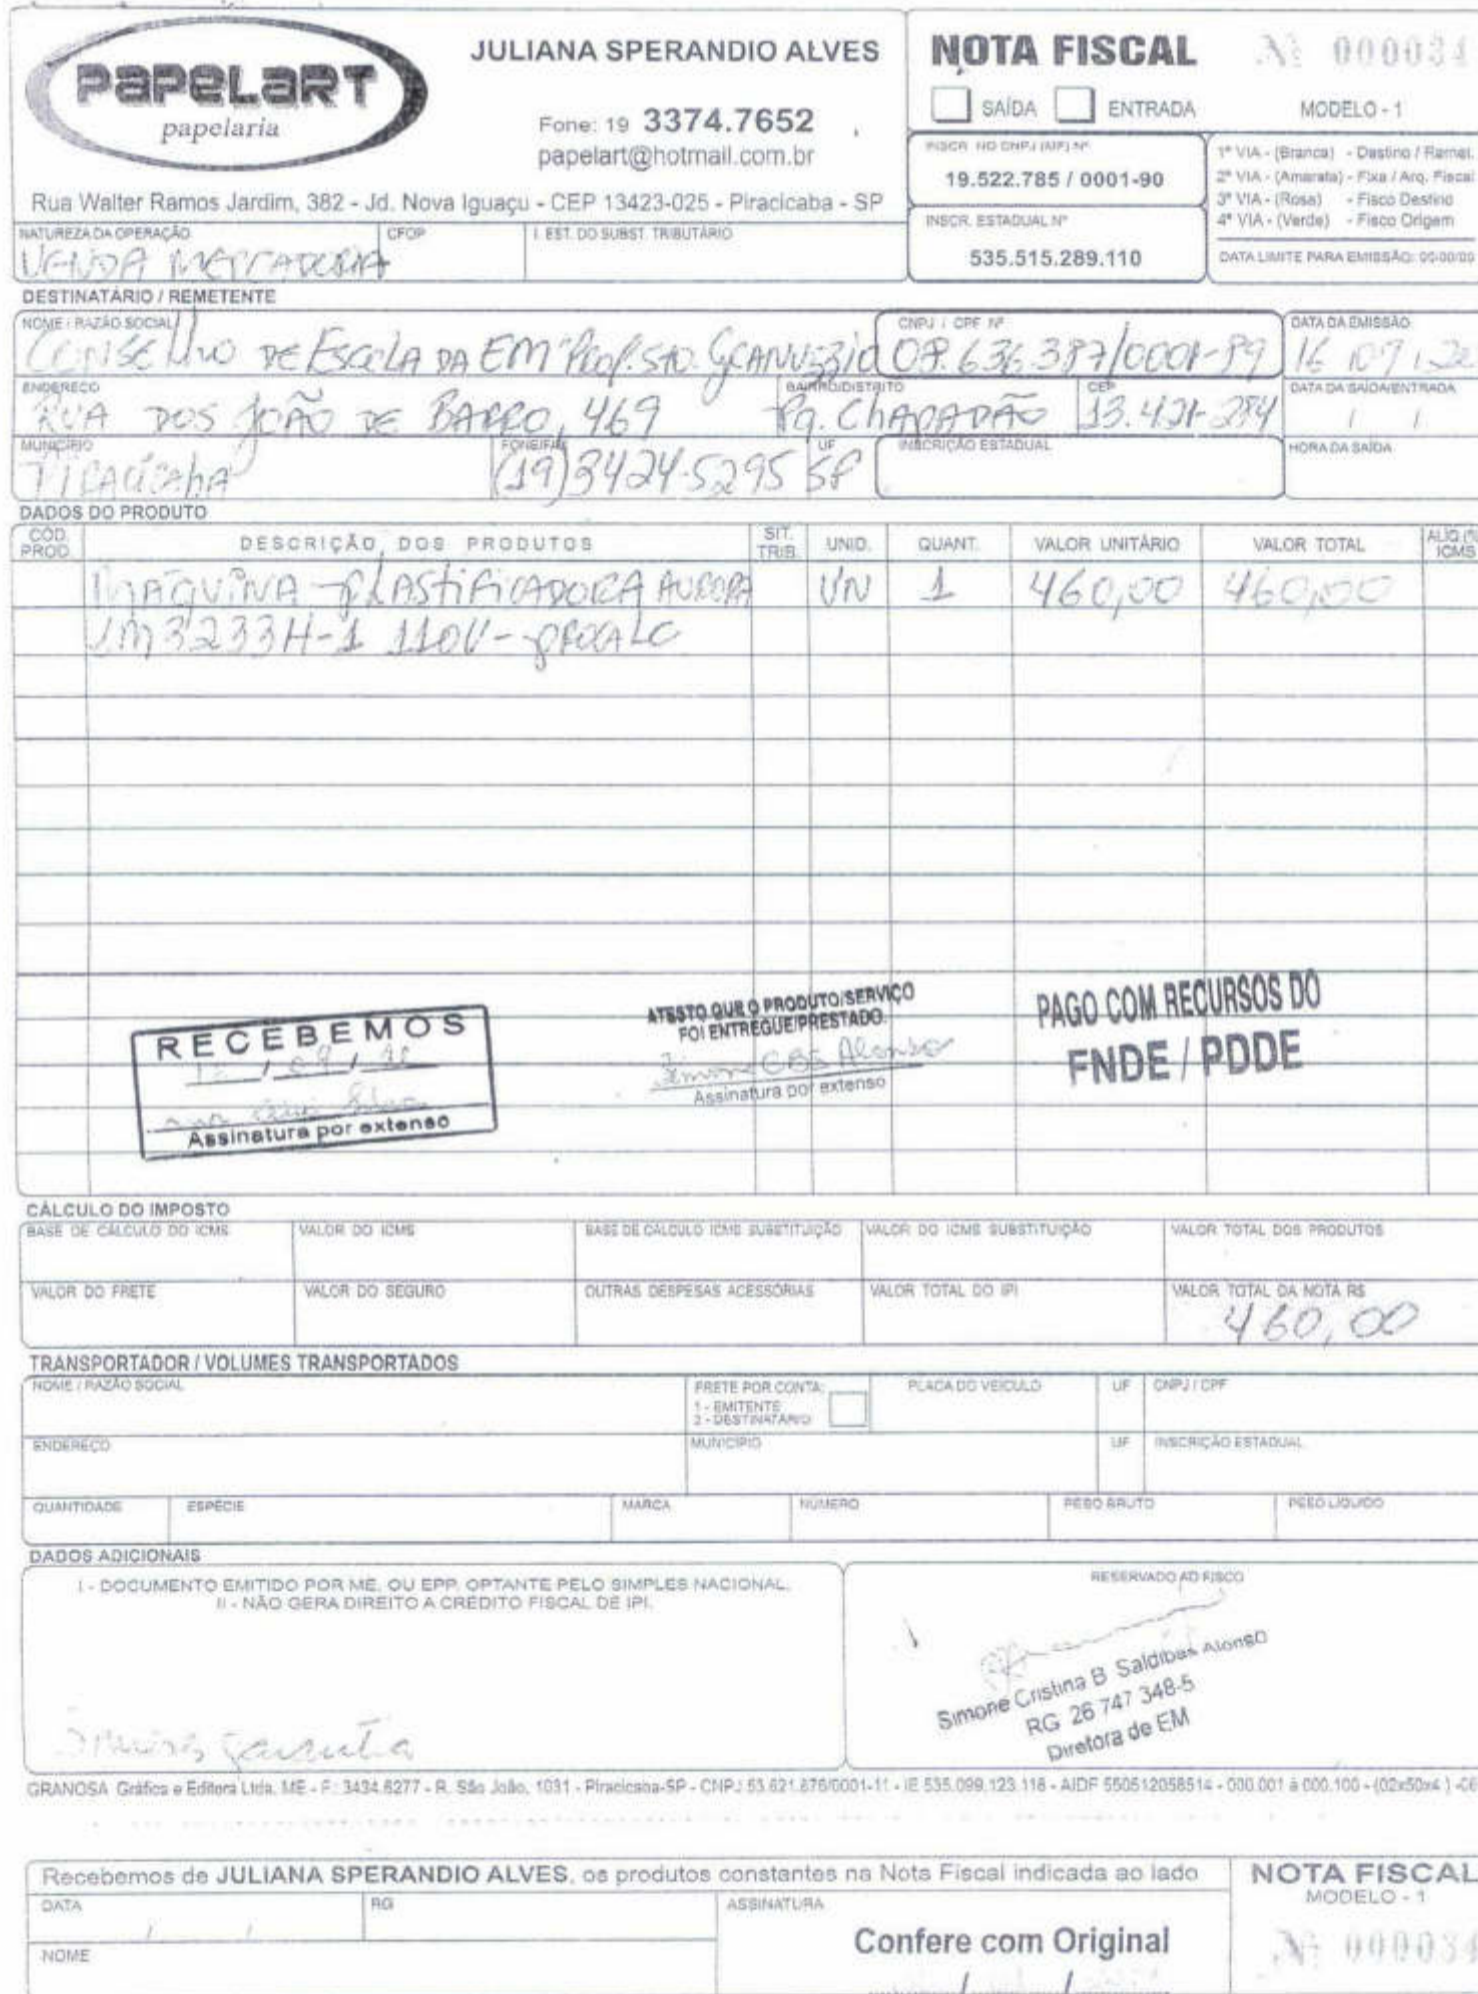 PAPELART
papelaria
JULIANA SPERANDIO ALVES
Fone: 19 3374.7652
papelart@hotmail.com.br
Rua Walter Ramos Jardim, 382 - Jd. Nova Iguaçu - CEP 13423-025 - Piracicaba - SP
NOTA FISCAL Nº 000034
SAÍDA ENTRADA MODELO - 1
INSCR. NO CNPJ (MF) Nº
19.522.785 / 0001-90
INSCR. ESTADUAL Nº
535.515.289.110
1ª VIA - (Branca) - Destino / Remet.
2ª VIA - (Amarela) - Fixa / Arq. Fiscal
3ª VIA - (Rosa) - Fisco Destino
4ª VIA - (Verde) - Fisco Origem
DATA LIMITE PARA EMISSÃO: 00/00/00
NATUREZA DA OPERAÇÃO CFOP I. EST. DO SUBST. TRIBUTÁRIO
VENDA MERCADORIA
DESTINATÁRIO / REMETENTE
NOME / RAZÃO SOCIAL CNPJ / CPF Nº DATA DA EMISSÃO
CONSELHO DE ESCOLA DA EM Prof. STO. 636.387/0001-89 16 107
ENDEREÇO BAIRRO/DISTRITO CEP DATA DA SAÍDA/ENTRADA
RUA DOS JOÃO DE BARRO, 469 Pq. CHAPADÃO 13.421-284 / /
MUNICÍPIO FONE/FAX UF INSCRIÇÃO ESTADUAL HORA DA SAÍDA
PIRACICABA (19)3424-5295 SP
DADOS DO PRODUTO
CÓD. PROD. DESCRIÇÃO DOS PRODUTOS SIT. TRIB. UNID. QUANT. VALOR UNITÁRIO VALOR TOTAL ALIQ (% ICMS
MÁQUINA PLASTIFICADORA AURORA UN 1 460,00 460,00
LM3233H-1 110V-
RECEBEMOS
Assinatura por extenso
ATESTO QUE O PRODUTO/SERVIÇO
FOI ENTREGUE/PRESTADO.
Simone CBS Alonso
Assinatura por extenso
PAGO COM RECURSOS DO
FNDE / PDDE
CÁLCULO DO IMPOSTO
BASE DE CÁLCULO DO ICMS VALOR DO ICMS BASE DE CÁLCULO ICMS SUBSTITUIÇÃO VALOR DO ICMS SUBSTITUIÇÃO VALOR TOTAL DOS PRODUTOS
VALOR DO FRETE VALOR DO SEGURO OUTRAS DESPESAS ACESSÓRIAS VALOR TOTAL DO IPI VALOR TOTAL DA NOTA R$
460,00
TRANSPORTADOR / VOLUMES TRANSPORTADOS
NOME / RAZÃO SOCIAL FRETE POR CONTA: PLACA DO VEÍCULO UF CNPJ / CPF
1 - EMITENTE
2 - DESTINATÁRIO
ENDEREÇO MUNICÍPIO UF INSCRIÇÃO ESTADUAL
QUANTIDADE ESPÉCIE MARCA NÚMERO PESO BRUTO PESO LÍQUIDO
DADOS ADICIONAIS
I - DOCUMENTO EMITIDO POR ME, OU EPP. OPTANTE PELO SIMPLES NACIONAL.
II - NÃO GERA DIREITO A CRÉDITO FISCAL DE IPI.
RESERVADO AO FISCO
Simone Cristina B Saldibas Alonso
RG 26 747 348-5
Diretora de EM
GRANOSA Gráfica e Editora Ltda. ME - F.: 3434.6277 - R. São João, 1031 - Piracicaba-SP - CNPJ 53.621.676/0001-11 - IE 535.099.123.118 - AIDF 550512058514 - 000.001 à 000.100 - (02x50x4 ) -06
Recebemos de JULIANA SPERANDIO ALVES, os produtos constantes na Nota Fiscal indicada ao lado
NOTA FISCAL
MODELO - 1
Nº 000034
DATA RG ASSINATURA
/ /
NOME
Confere com Original